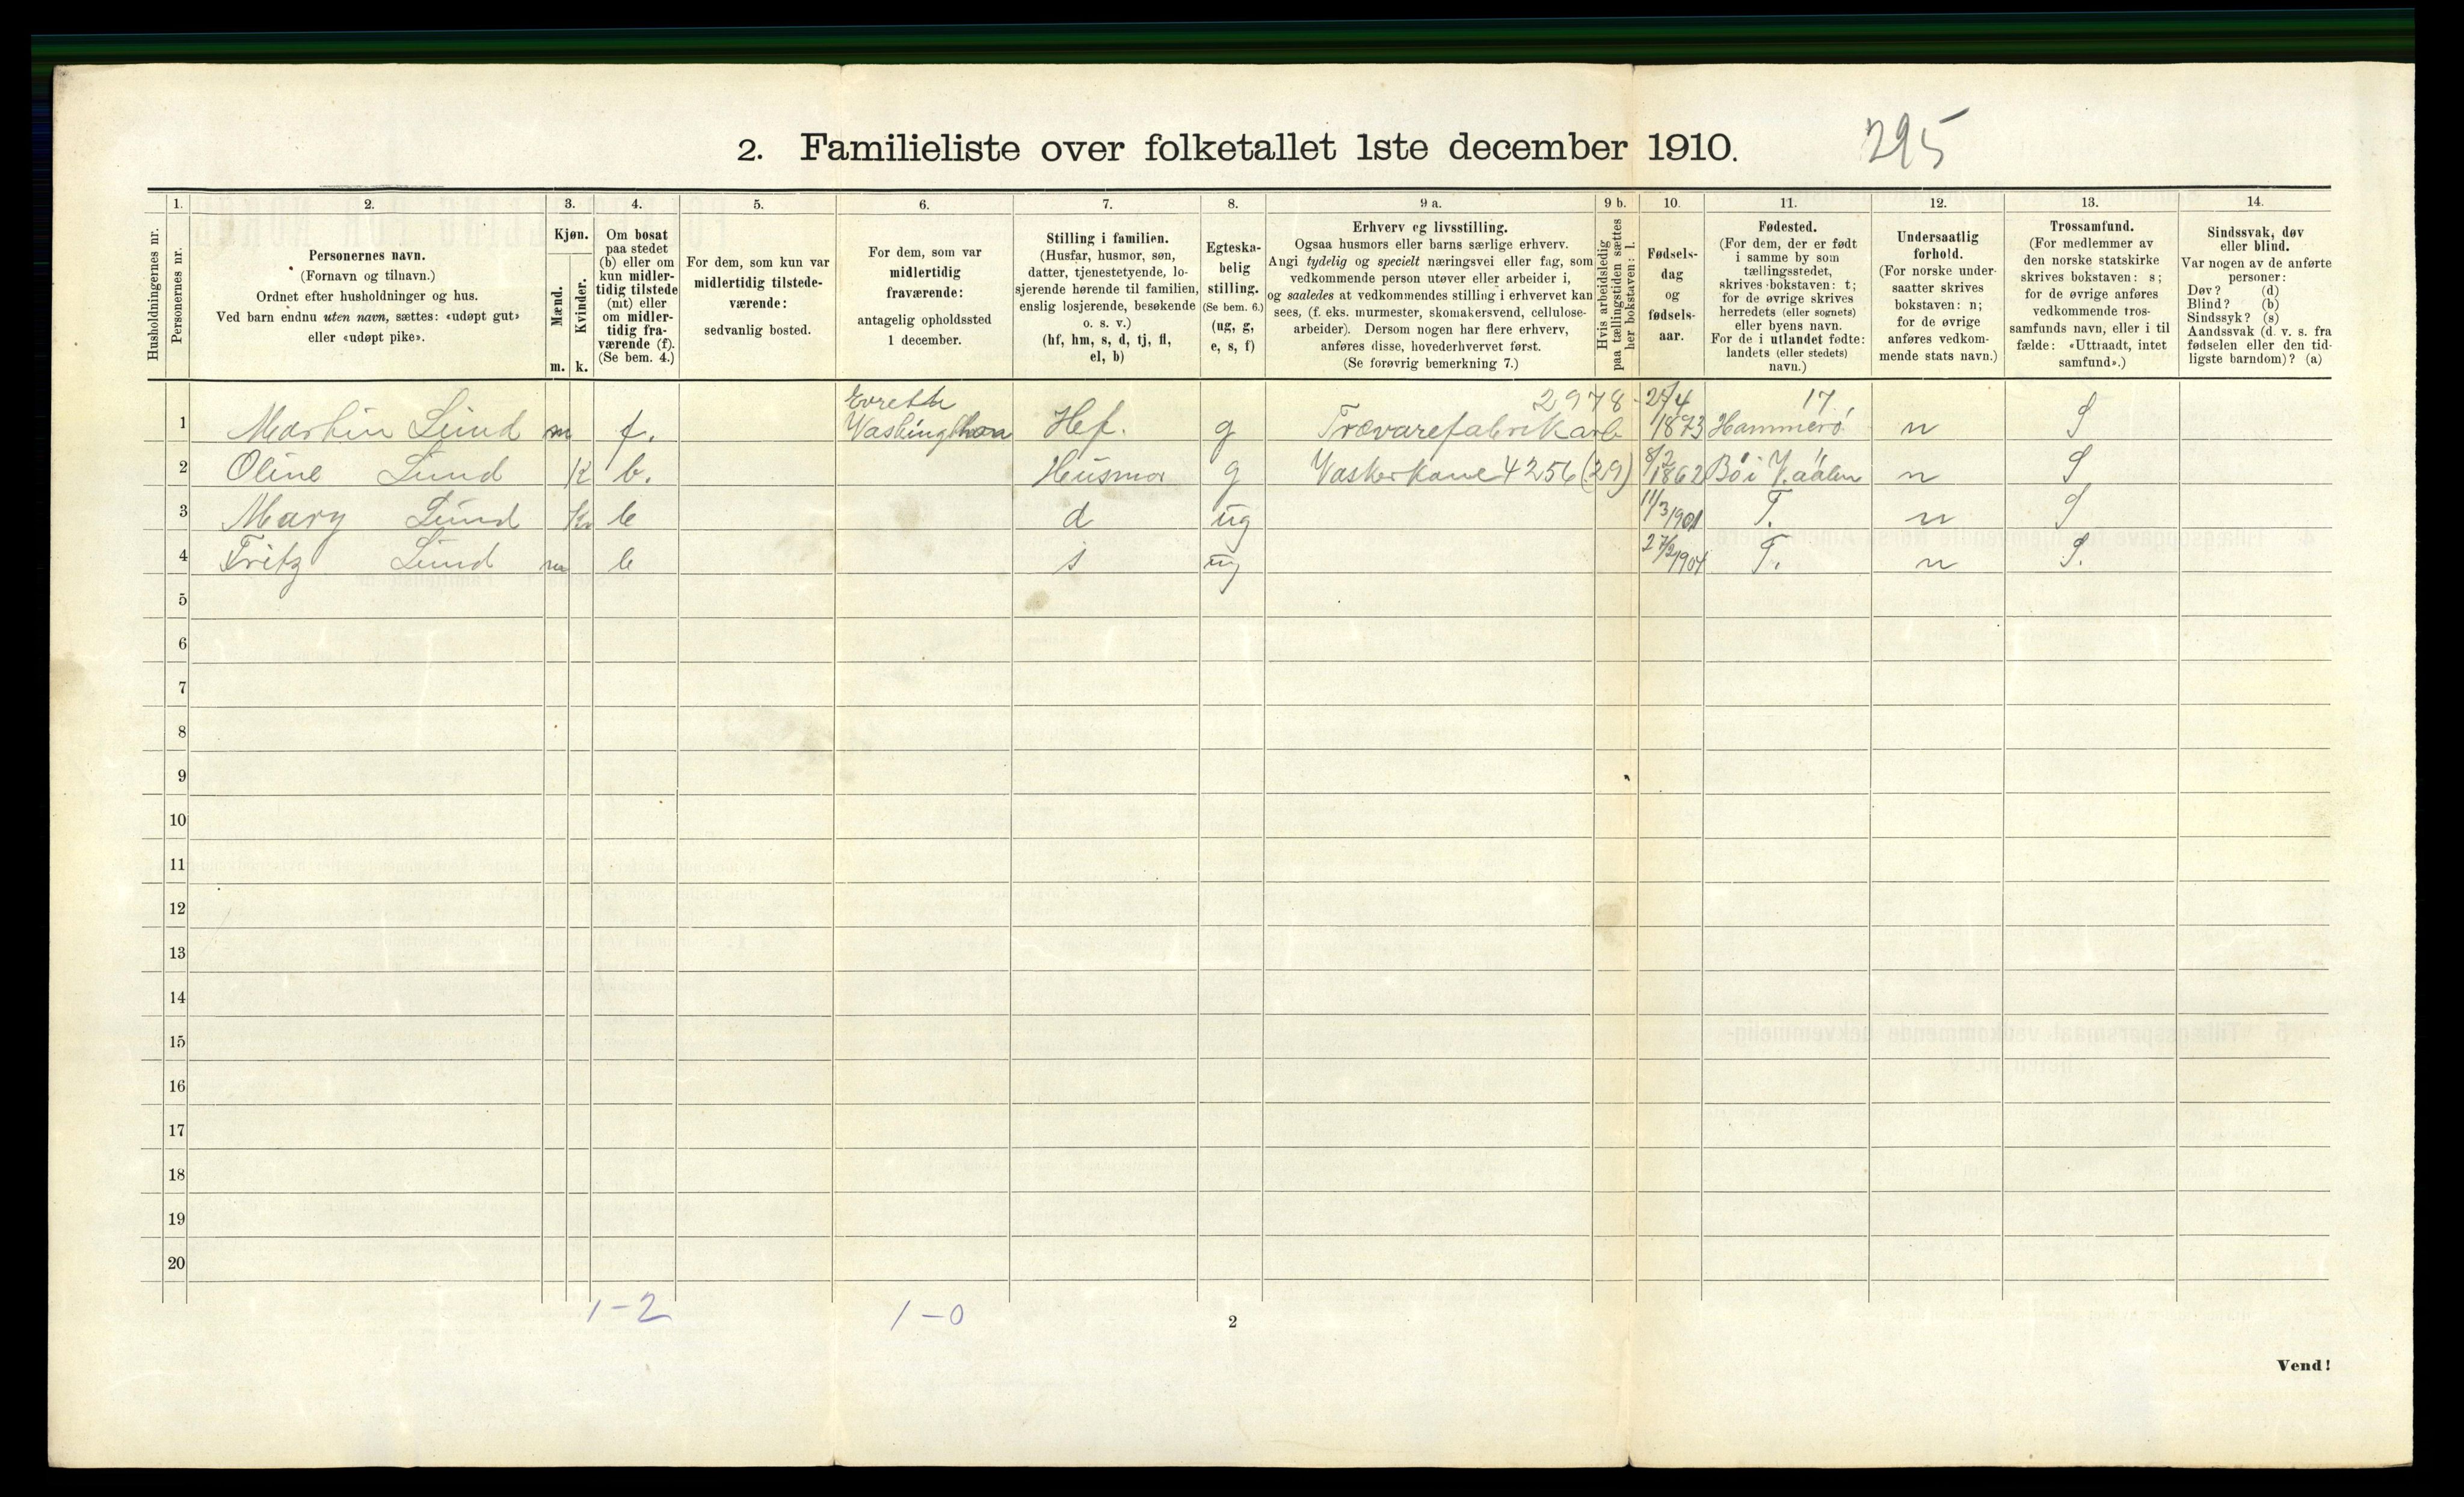 2. Familieliste over folketallet 1ste december 1910. 295
1. 2. 3. 4. 5. 6. 7. 8. 9 a. 9 b. 10. 11. 12. 13. 14.
Husholdningernes nr.
Personernes nr.
Personernes navn.
(Fornavn og tilnavn.)
Ordnet efter husholdninger og hus.
Ved barn endnu uten navn, sættes: «udøpt gut»
eller «udøpt pike».
Kjøn.
Mænd.
Kvinder.
m. k.
Om bosat
paa stedet
(b) eller om
kun midler-
tidig tilstede
(mt) eller
om midler-
tidig fra-
værende (f).
(Se bem. 4.)
For dem, som kun var
midlertidig tilstede-
værende:
sedvanlig bosted.
For dem, som var
midlertidig
fraværende:
antagelig opholdssted
1 december.
Stilling i familien.
(Husfar, husmor, søn,
datter, tjenestetyende, lo-
sjerende hørende til familien,
enslig losjerende, besøkende
o. s. v.)
(hf, hm, s, d, tj, fl,
el, b)
Egteska-
belig
stilling.
(Se bem. 6.)
(ug, g,
e, s, f)
Erhverv og livsstilling.
Ogsaa husmors eller barns særlige erhverv.
Angi tydelig og specielt næringsvei eller fag, som
vedkommende person utøver eller arbeider i,
og saaledes at vedkommendes stilling i erhvervet kan
sees, (f. eks. murmester, skomakersvend, cellulose-
arbeider). Dersom nogen har flere erhverv,
anføres disse, hovederhvervet først.
(Se forøvrig bemerkning 7.)
Hvis arbeidsledig
paa tællingstiden sættes
her bokstaven: l.
Fødsels-
dag
og
fødsels-
aar.
Fødested.
(For dem, der er født
i samme by som
tællingsstedet,
skrives bokstaven: t;
for de øvrige skrives
herredets (eller sognets)
eller byens navn.
For de i utlandet fødte:
landets (eller stedets)
navn.)
Undersaatlig
forhold.
(For norske under-
saatter skrives
bokstaven: n;
for de øvrige
anføres vedkom-
mende stats navn.)
Trossamfund.
(For medlemmer av
den norske statskirke
skrives bokstaven: s;
for de øvrige anføres
vedkommende tros-
samfunds navn, eller i til
fælde: «Uttraadt, intet
samfund».)
Sindssvak, døv
eller blind.
Var nogen av de anførte
personer:
Døv? (d)
Blind? (b)
Sindssyk? (s)
Aandssvak (d. v. s. fra
fødselen eller den tid-
ligste barndom)? (a)
Evreth 2978 17
1 Martin Lund m f. Washingthon Hef. g Trævarefabrikarb 27/4 1873 Hammerö n S
2 Oline Lund K b. Husmor g Vaskerkone 4256 (29) 8/2 1862 Bö i V.aalen n S
3 Mary Lund K b d ug 11/3 1901 T. n S
4 Fritz Lund m b s ug 27/2 1904 T. n S.
5
6
7
8
9
10
11
12
13
14
15
16
17
18
19
20
1-2 1-0
2
Vend!